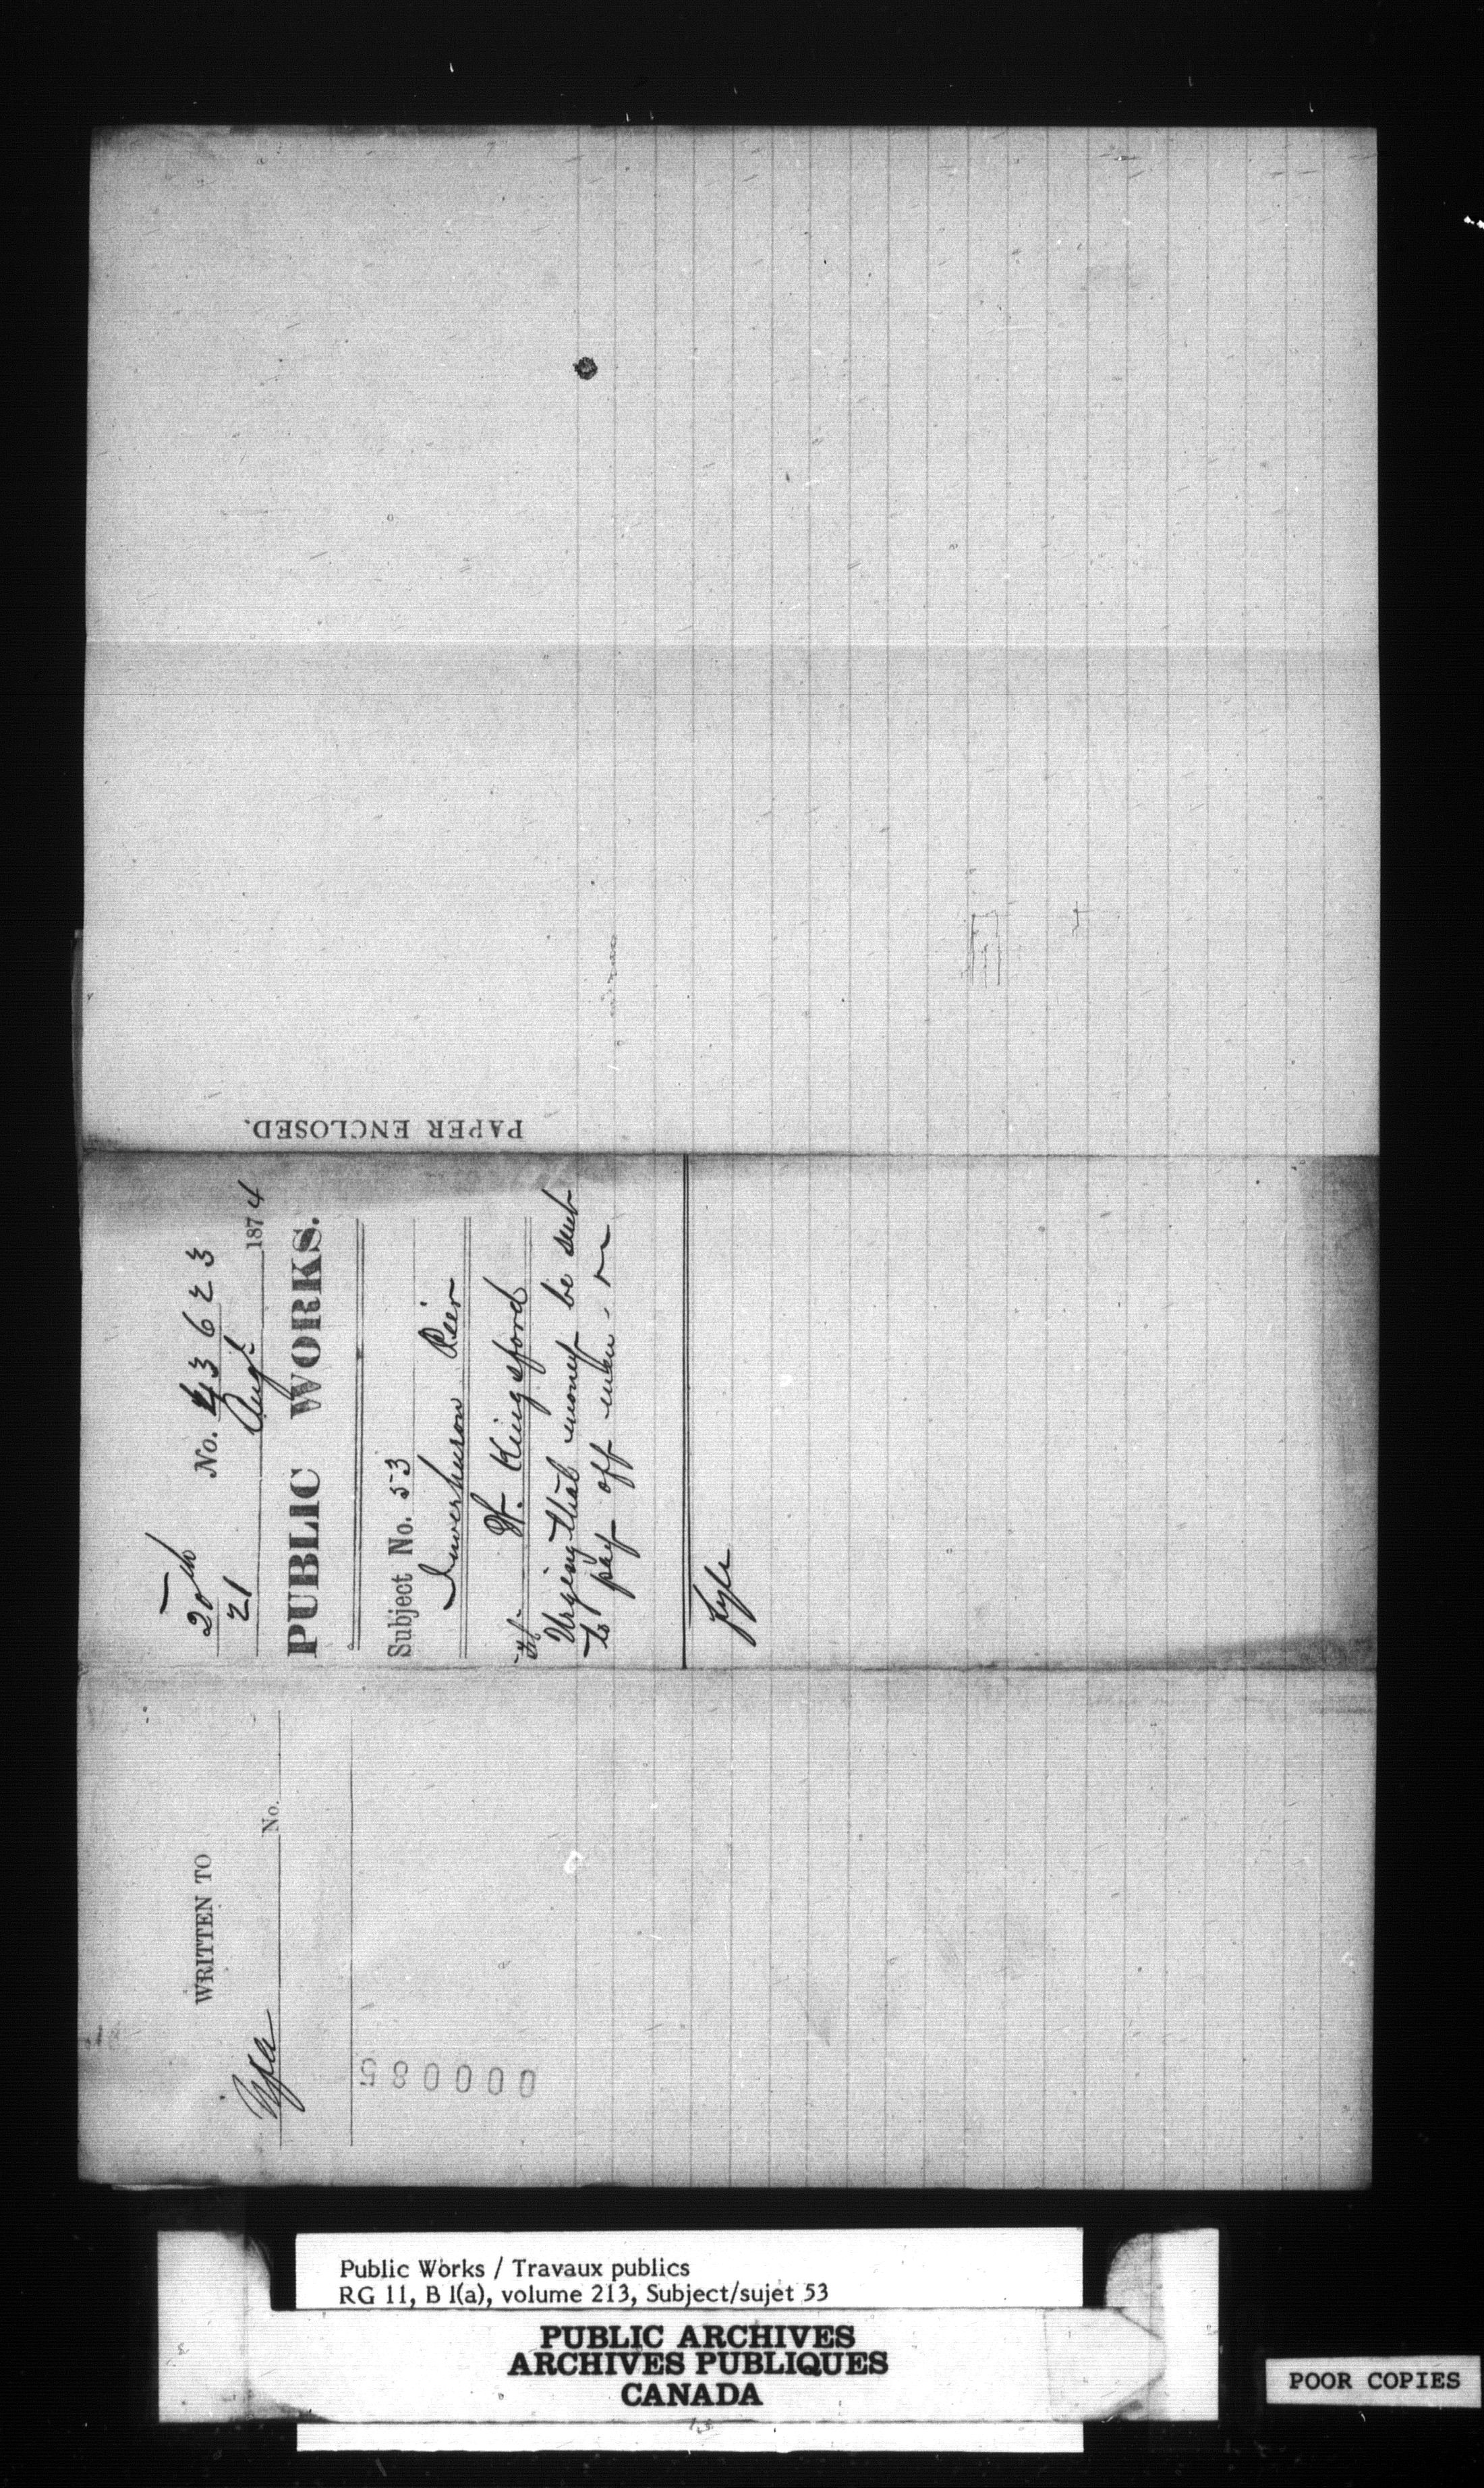 PAPER ENCLOSED.
20th
21
No. 43623
Augt 1874
PUBLIC WORKS.
Subject No. 53
Inverhuron Pier
W. Kingsford
Urging that money be sent
to pay off men
Fyle
WRITTEN TO
No.
000085
Public Works / Travaux publics
RG 11, B 1(a), volume 213, Subject/sujet 53
PUBLIC ARCHIVES
ARCHIVES PUBLIQUES
CANADA
POOR COPIES